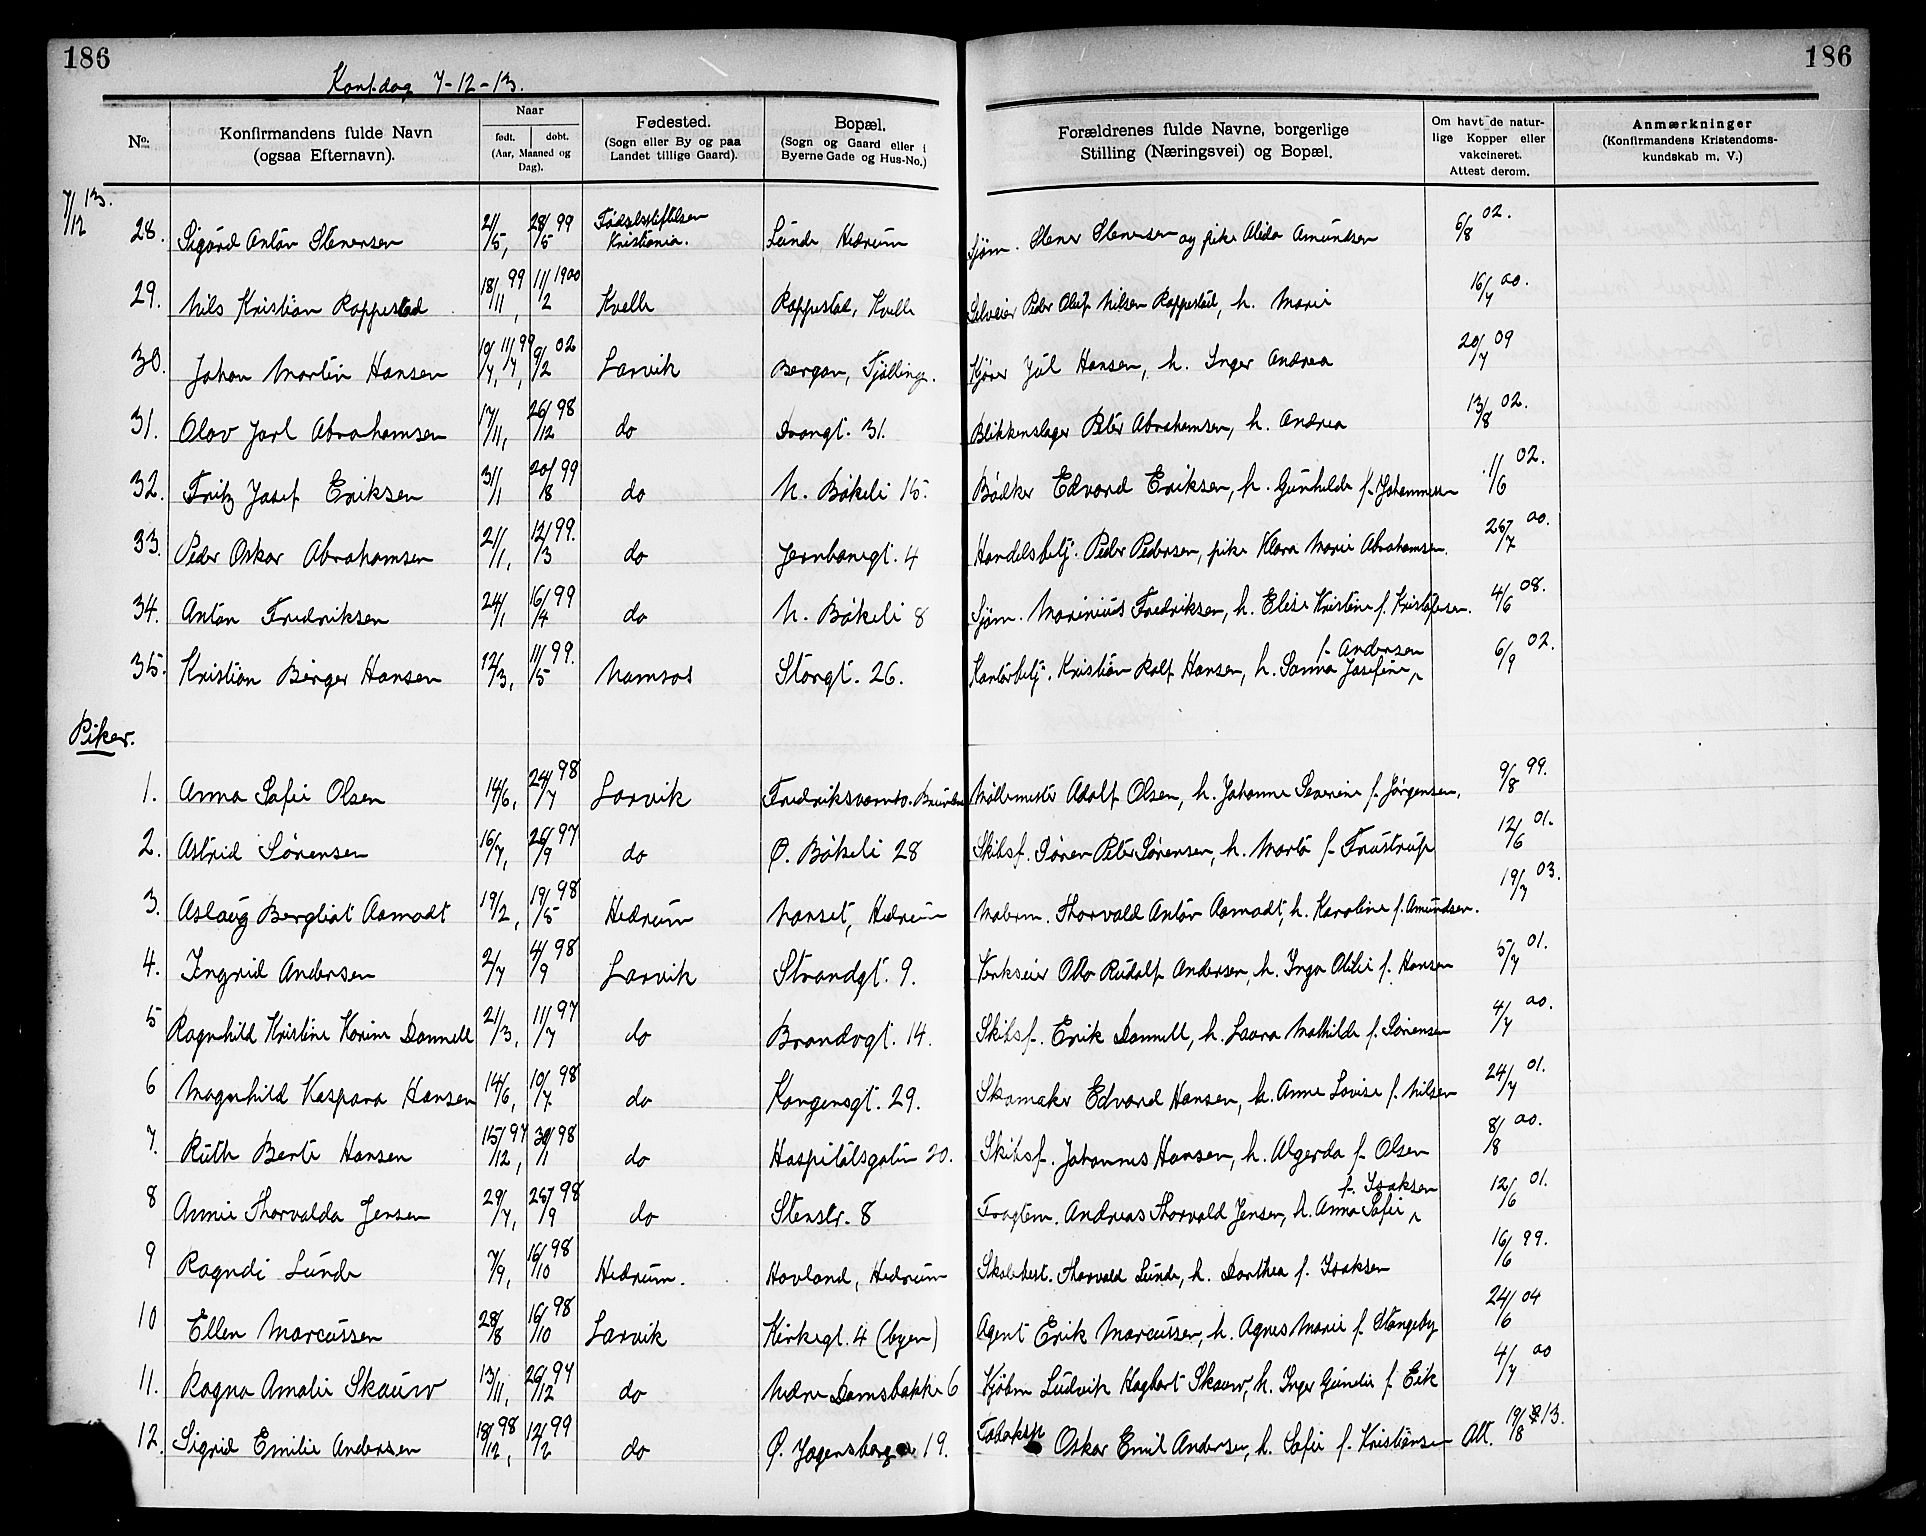 186
186
Konf.dag 7-12-13.
No.
Konfirmandens fulde Navn
(ogsaa Efternavn).
Naar
født. døbt.
(Aar, Maaned og
Dag).
Fødested.
(Sogn eller By og paa
Landet tillige Gaard).
Bopæl.
(Sogn og Gaard eller i
Byerne Gade og Hus-No.)
Forældrenes fulde Navne, borgerlige
Stilling (Næringsvei) og Bopæl.
Om havt de natur-
lige Kopper eller
vakcineret.
Attest derom.
Anmærkninger
(Konfirmandens Kristendoms-
kundskab m. V.)
7/12 13.
28. Sigurd Anton Stenersen 21/5, 28/5 99 Fødselsstiftelsen Kristiania. Lunde, Hedrum Sjøm. Stener Stenersen og pike Alida Amundsen 6/8 02.
29. Nils Kristian Rappestad 18/11 99, 11/2 1900 Kvelle Rappestad, Kvelle Selveier Peder Oluf Nilsen Rappestad, h. Marie 16/7 00.
30. Johan Martin Hansen 99 9/2 02 Larvik Bergan, Tjølling. Kjører Jul Hansen, h. Inger Andrea 20/7 09
31. Olav Jarl Abrahamsen 17/11, 26/12 98 do Dronngt. 31. Blikkenslager Peter Abrahamsen, h. Andrea 13/8 02.
32. Fritz Josef Eriksen 31/1 20/8 99 do N. Bøkeli 15. Bødker Edvard Eriksen, h. Gunhilde f. Johannessen 11/6 02.
33. Peder Oskar Abrahamsen 21/1, 12/3 99. do Jernbanegt. 4 Handelsbetj. Peder Pedersen, pike Klara Marie Abrahamsen. 26/7 00.
34. Anton Fredriksen 24/1 16/4 99 do N. Bøkeli 8 Sjøm. Marinius Fredriksen, h. Elise Kristine f. Kristofersen. 4/6 08.
35. Kristian Birger Hansen 12/3, 11/5 99. Namsos Storgt. 26. Kontorbetj. Kristian Rolf Hansen, h. Sanna Josefine f. Andersen 6/9 02.
Piker.
1. Anna Sofie Olsen 14/6, 24/7 98 Larvik Fredriksværnsv. Møllemester Adolf Olsen, h. Johanne Severine f. Jørgensen. 9/8 99.
2. Astrid Sørensen 16/7, 26/9 97 do Ø. Bøkeli 28 Skibsf. Søren Peter Sørensen, h. Marta f. Frustrup 12/6 01.
3. Aslaug Bergliot Aamodt 19/2, 19/5 98 Hedrum Nanset, Hedrum Malerm. Thorvald Anton Aamodt, h. Karoline f. Amundsen. 19/7 03.
4. Ingrid Andersen 2/7 4/9 98 Larvik Strandgt. 9. Verkseier Otto Rudolf Andersen, h. Inga Otilie f. Hansen 5/7 01.
5 Ragnhild Kristine Karine Dannell 21/3, 11/7 97 do Brandvgt. 14. Skibsf. Erik Dannell, h. Laura Mathilde f. Sørensen 4/7 00.
6 Magnhild Kaspara Hansen 14/6, 10/7 98 do Kongensgt. 29. Skomaker Edvard Hansen, h. Anne Lovise f. Nilsen 24/7 01.
7. Ruth Berte Hansen 15/12 97, 30/1 98 do Hospitalsgaten 20. Skibsf. Johannes Hansen, h. Algerda f. Olsen 8/8 00.
8 Annie Thorvalda Jensen 29/7, 25/9 98 do Stenstr. 8 Fragtem. Andreas Thorvald Jensen, h. Anna Sofie f. Isaksen 12/6 01.
9 Ragndi Lunde 7/9, 16/10 98 Hedrum. Hovland, Hedrum Skolebest. Thorvald Lunde, h. Dorthea f. Isaksen 16/6 99.
10 Ellen Marcussen 28/8 16/10 98 Larvik Kirkegt. 4 (byen) Agent Erik Marcussen, h. Agnes Marie f. Stangeby 24/6 04
11. Ragna Amalie Skauw 13/11, 26/12 97 do Nedre Damsbakke 6 Kjøbm Ludvik Hagbart Skauw, h. Inger Gunda f. Eik 4/7 00
12. Sigrid Emilie Andersen 18/12 98, 12/2 99 do Ø. Jegersborg 19. Oskar Emil Andersen, h. Sofie f. Kristiansen Att. 19/8 13.